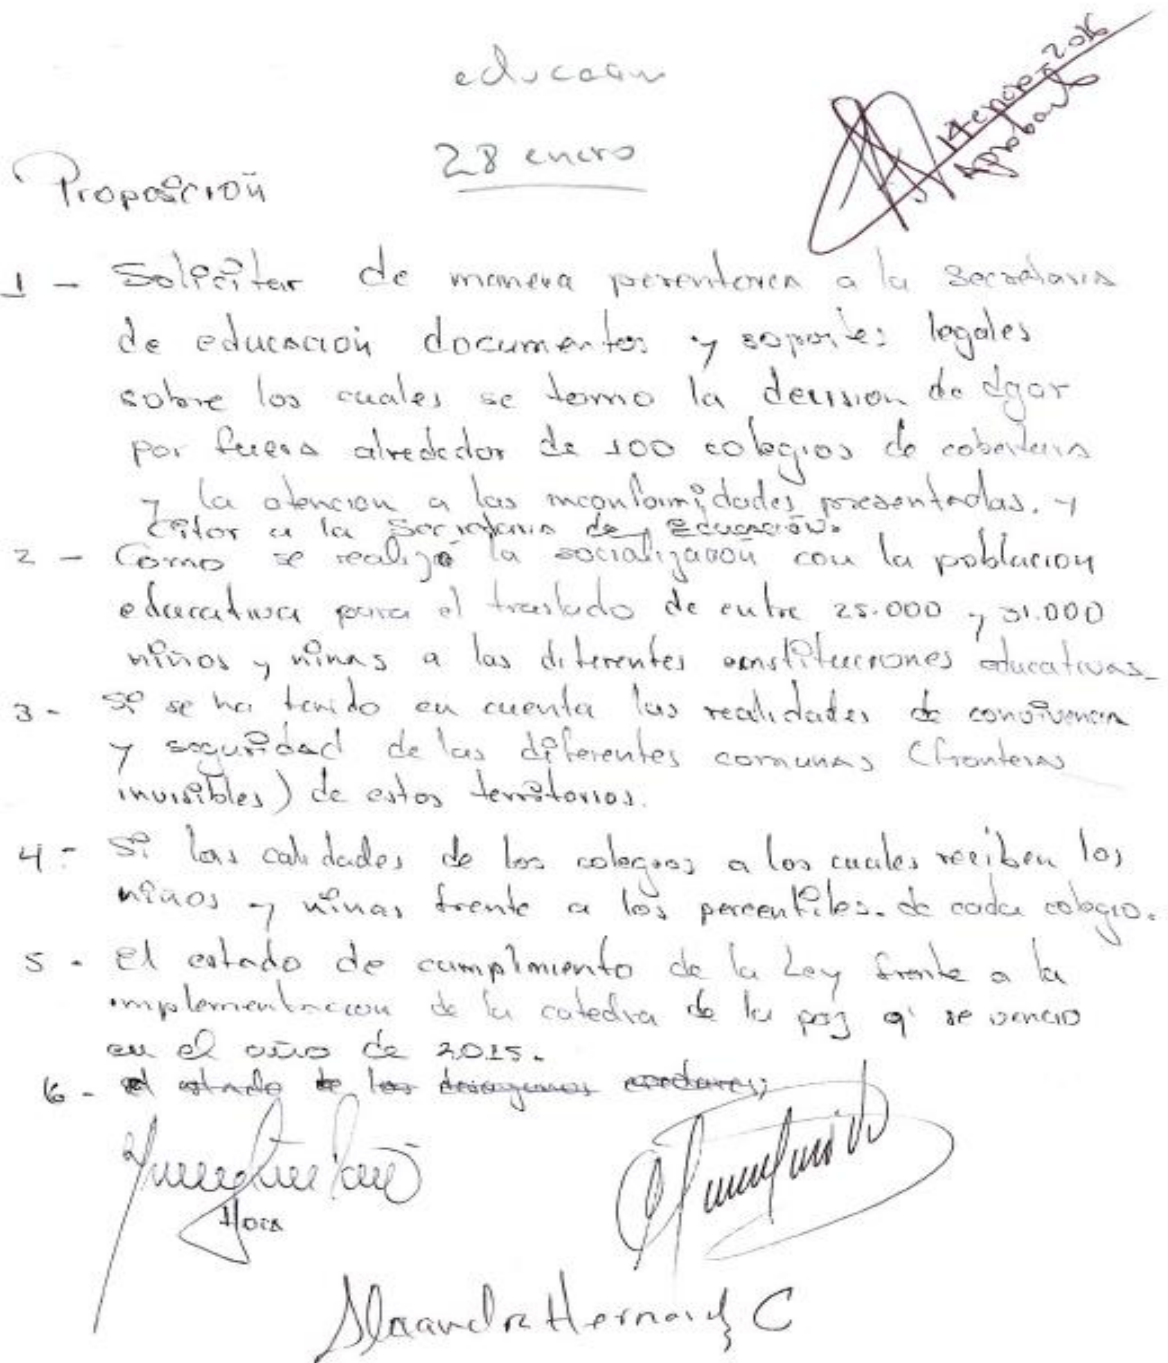 educacion
28 enero
14 enero 2016
Aprobado
Proposición
1 - Solicitar de manera perentorea a la secretaria
de educación documentos y soportes legales
sobre los cuales se tomo la decision de dejar
por fuera alrededor de 100 colegios de cobertura
y la atencion a las inconformidades presentadas. y
citar a la Secretaria de Educación.
2 - Como se realizo la socialización con la poblacion
educativa para el traslado de entre 25.000 y 31.000
niños y ninas a las diferentes instituciones educativas-
3 - Si se ha tenido en cuenta las realidades de convivencia
y seguridad de las diferentes comunas (fronteras
invisibles) de estos territorios.
4 - Si las calidades de los colegios a los cuales reciben los
niños y ninas frente a los percentiles. de cada colegio.
5 - El estado de cumplimiento de la Ley frente a la
implementacion de la catedra de la paz q' se vencio
en el año de 2015.
6 - el estado de los
Alexandra Hernandez C